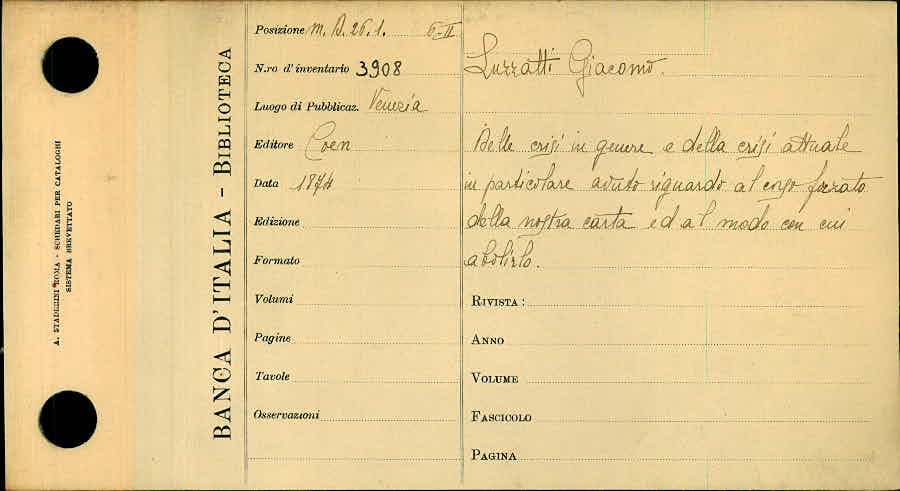 A. STADERINI ROMA - SCHEDARI PER CATALOGHI
SISTEMA BREVETTATO
BANCA D'ITALIA - BIBLIOTECA
Posizione M. D. 26. 1. 6-II
N.ro d'inventario 3908
Luogo di Pubblicaz. Venezia
Editore Coen
Data 1874
Edizione
Formato
Volumi
Pagine
Tavole
Osservazioni
Luzzatti Giacomo.
Delle crisi in genere e della crisi attuale
in particolare avuto riguardo al corso forzato
della nostra carta ed al modo con cui
abolirlo.
RIVISTA:
ANNO
VOLUME
FASCICOLO
PAGINA